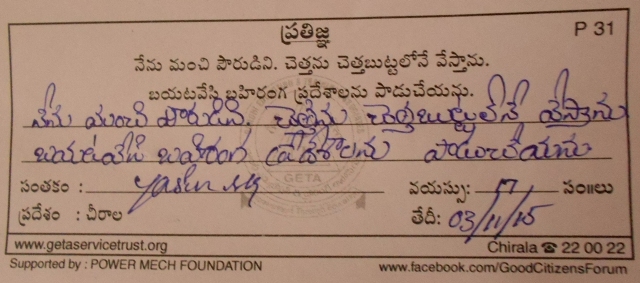 ప్రతిజ్ఞ P 31
నేను మంచి పౌరుడిని. చెత్తను చెత్తబుట్టలోనే వేస్తాను.
బయటవేసి బహిరంగ ప్రదేశాలను పాడుచేయను.
నేను మంచి పౌరుడిని. చెత్తను చెత్తబుట్టలోనే వేస్తాను
బయటవేసి బహిరంగ ప్రదేశాలను పాడుచేయను
సంతకం : వయస్సు: 17 సం॥లు
ప్రదేశం : చీరాల తేదీ: 03/11/15
GETA
www.getaservicetrust.org Chirala ☎ 22 00 22
Supported by : POWER MECH FOUNDATION www.facebook.com/GoodCitizensForum